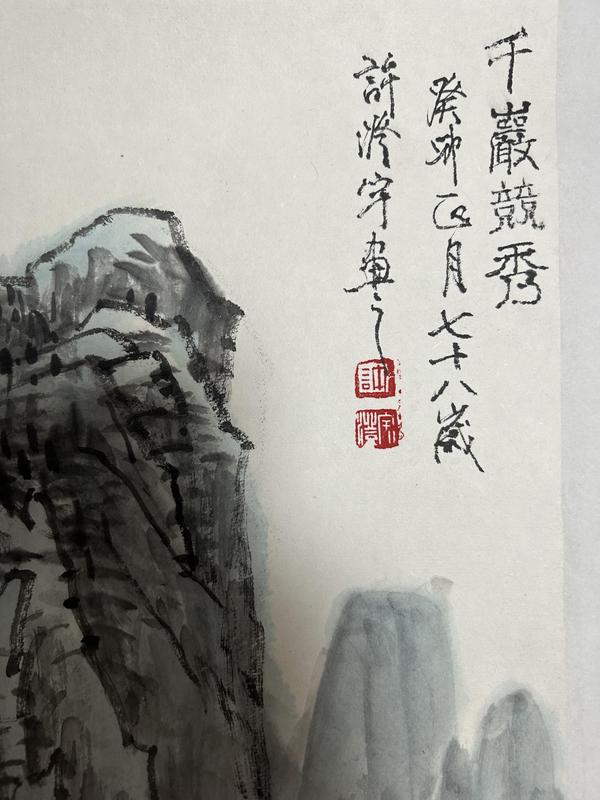 千巖競秀
癸卯正月七十八歲
許澄宇畫之
許